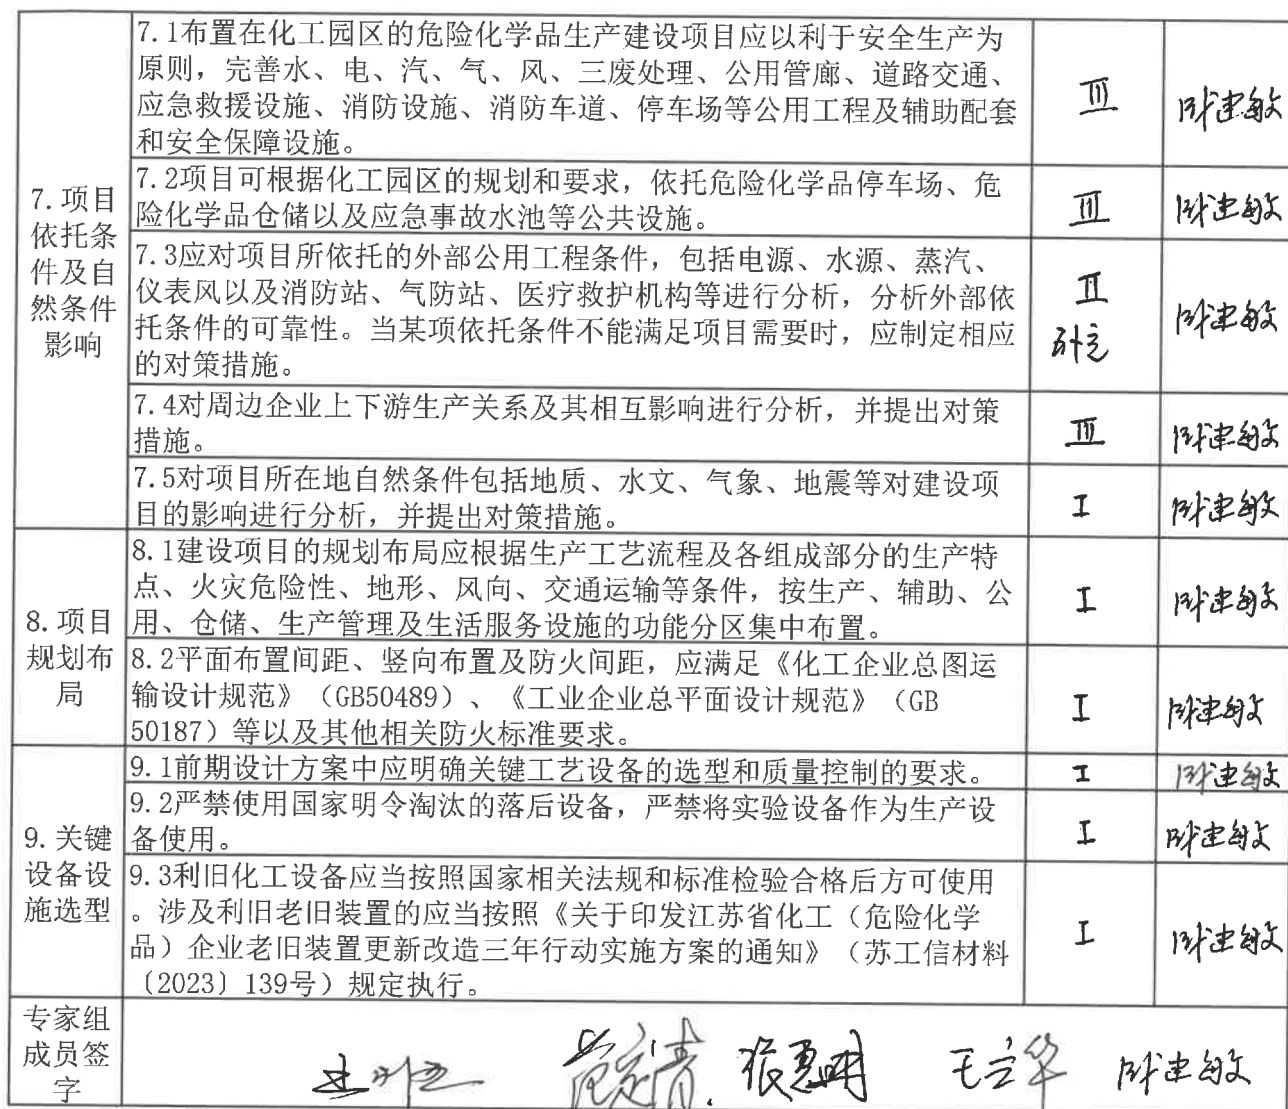 7.1布置在化工园区的危险化学品生产建设项目应以利于安全生产为
原则，完善水、电、汽、气、风、三废处理、公用管廊、道路交通、
应急救援设施、消防设施、消防车道、停车场等公用工程及辅助配套
和安全保障设施。
III
7.项目
依托条
件及自
然条件
影响
7.2项目可根据化工园区的规划和要求，依托危险化学品停车场、危
险化学品仓储以及应急事故水池等公共设施。
III
7.3应对项目所依托的外部公用工程条件，包括电源、水源、蒸汽、
仪表风以及消防站、气防站、医疗救护机构等进行分析，分析外部依
托条件的可靠性。当某项依托条件不能满足项目需要时，应制定相应
的对策措施。
II
7.4对周边企业上下游生产关系及其相互影响进行分析，并提出对策
措施。
III
7.5对项目所在地自然条件包括地质、水文、气象、地震等对建设项
目的影响进行分析，并提出对策措施。
I
8.项目
规划布
局
8.1建设项目的规划布局应根据生产工艺流程及各组成部分的生产特
点、火灾危险性、地形、风向、交通运输等条件，按生产、辅助、公
用、仓储、生产管理及生活服务设施的功能分区集中布置。
I
8.2平面布置间距、竖向布置及防火间距，应满足《化工企业总图运
输设计规范》（GB50489）、《工业企业总平面设计规范》（GB
50187）等以及其他相关防火标准要求。
I
9.关键
设备设
施选型
9.1前期设计方案中应明确关键工艺设备的选型和质量控制的要求。
I
9.2严禁使用国家明令淘汰的落后设备，严禁将实验设备作为生产设
备使用。
I
9.3利旧化工设备应当按照国家相关法规和标准检验合格后方可使用
。涉及利旧老旧装置的应当按照《关于印发江苏省化工（危险化学
品）企业老旧装置更新改造三年行动实施方案的通知》（苏工信材料
〔2023〕139号）规定执行。
I
专家组
成员签
字
张惠明 王立华